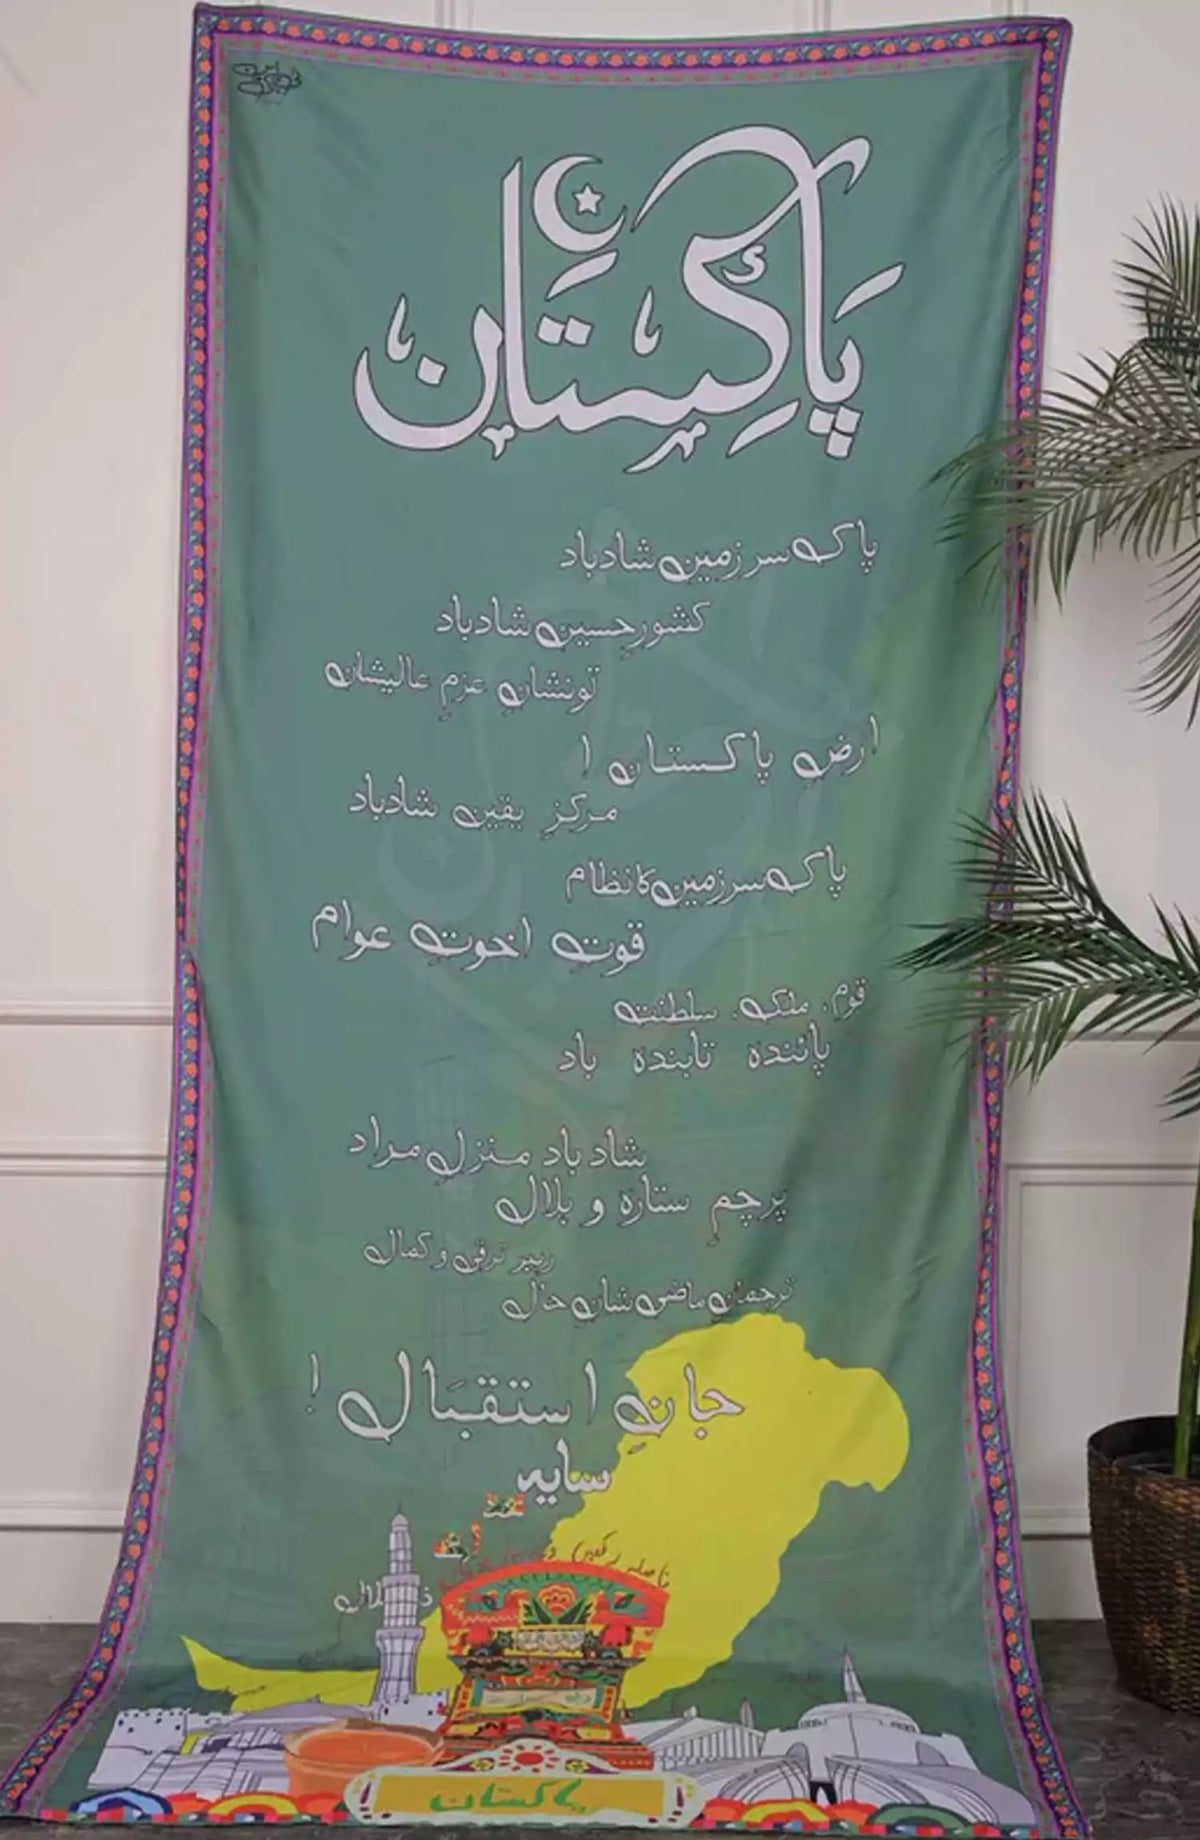 پاکستان
پاک سرزمین شادباد
کشور حسین شادباد
تو نشانِ عزمِ عالیشان
ارضِ پاکستان !
مرکزِ یقین شادباد
پاک سرزمین کا نظام
قوت اخوتِ عوام
قوم، ملک، سلطنت
پائندہ تابندہ باد
شاد باد منزلِ مراد
پرچمِ ستارہ و ہلال
رہبر ترقی و کمال
ترجمانِ ماضی شانِ حال
جانِ استقبال !
سایہ
پاکستان